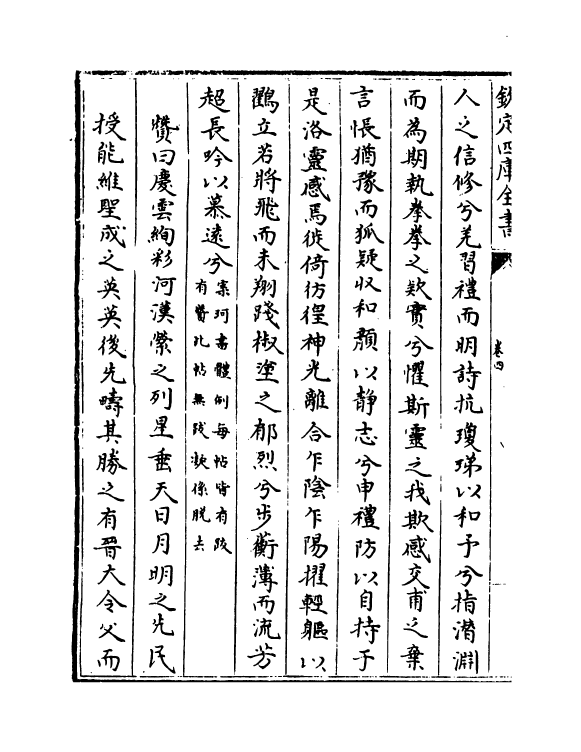 欽定四庫全書
卷四
人之信修兮羌習禮而明詩抗瓊珶以和予兮指潛淵
而為期執拳拳之欵實兮懼斯靈之我欺感交甫之棄
言悵猶豫而狐疑收和顏以静志兮申禮防以自持于
是洛靈感焉徙倚彷徨神光離合乍陰乍陽擢輕軀以
鸖立若將飛而未翔踐椒塗之郁烈兮步蘅薄而流芳
超長吟以慕遠兮
案珂書體例每帖皆有跋
有贊此帖無跋㵎係脱去
贊曰慶雲絢彩河漢縈之列星垂天日月明之先民
授能維聖成之英英後先疇其勝之有晉大令父而